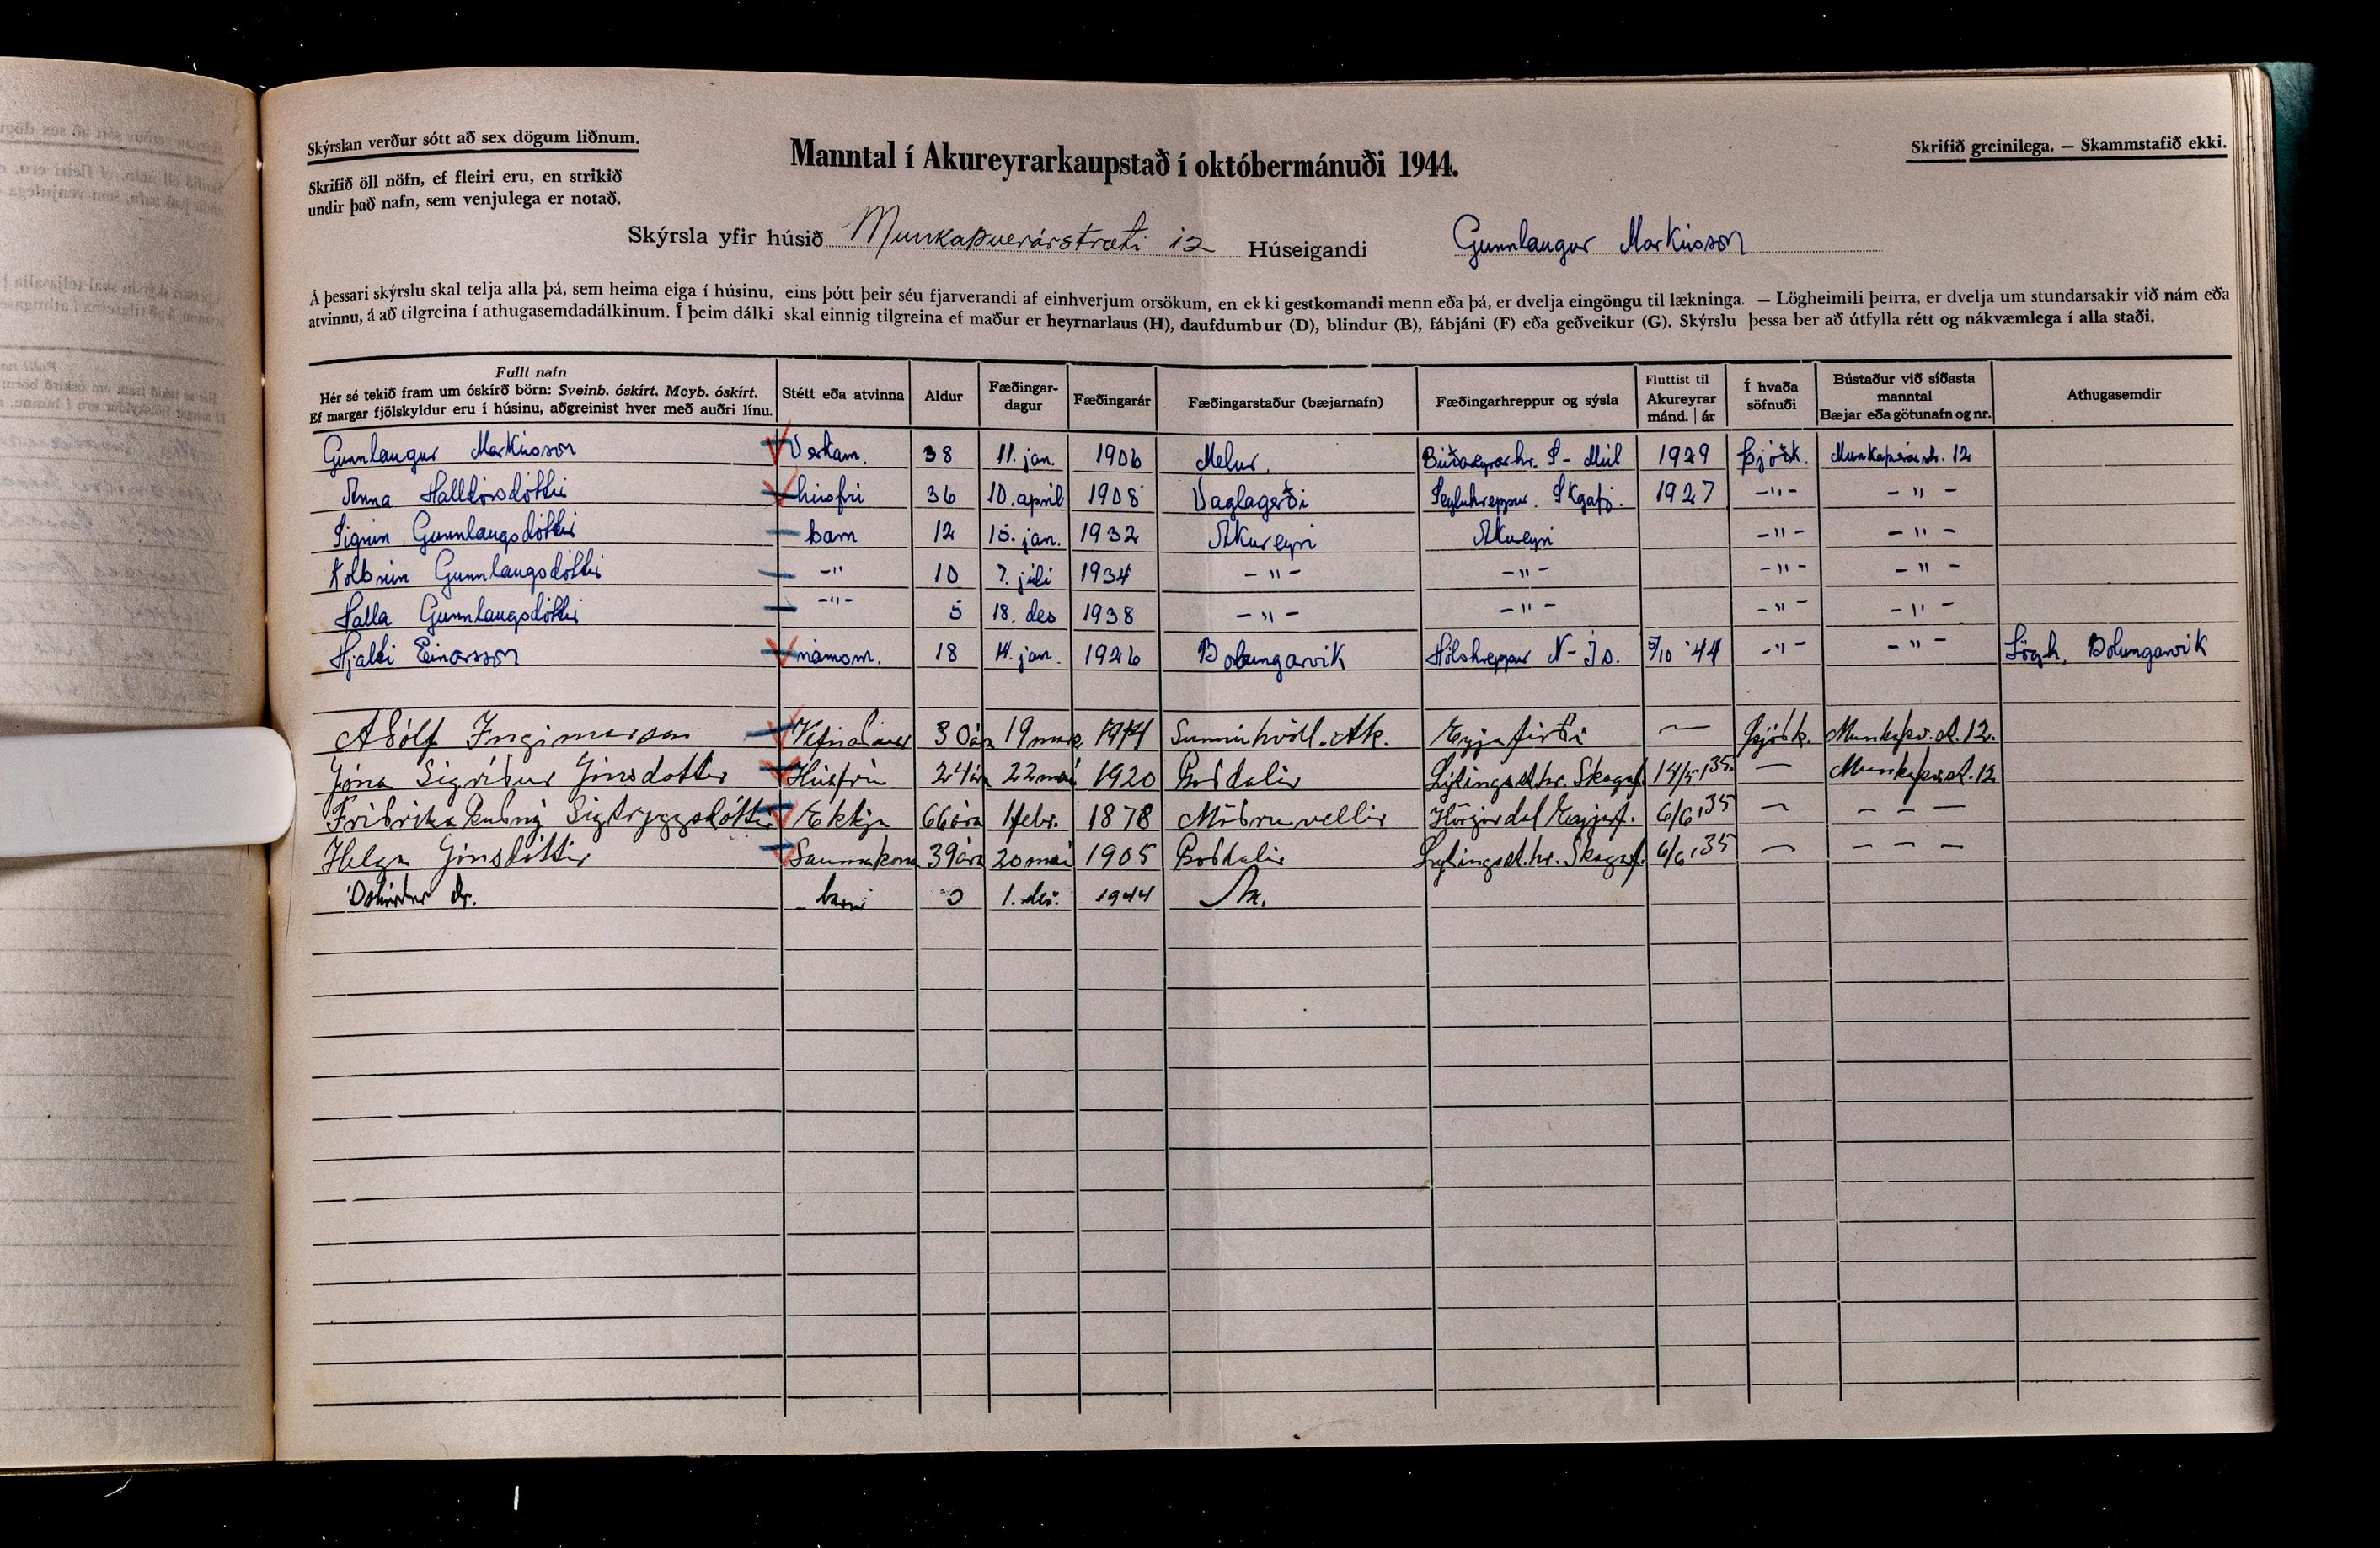 Skýrslan verður sótt að sex dögum liðnum.
Skrifið öll nöfn, ef fleiri eru, en strikið
undir það nafn, sem venjulega er notað.
Manntal í Akureyrarkaupstað í októbermánuði 1944.
Skrifið greinilega. — Skammstafið ekki.
Skýrsla yfir húsið Munkaþverárstræti 12 Húseigandi Gunnlaugur Markússon
Á þessari skýrslu skal telja alla þá, sem heima eiga í húsinu, eins þótt þeir séu fjarverandi af einhverjum orsökum, en ekki gestkomandi menn eða þá, er dvelja eingöngu til lækninga. — Lögheimili þeirra, er dvelja um stundarsakir við nám eða
atvinnu, á að tilgreina í athugasemdadálkinum. Í þeim dálki skal einnig tilgreina ef maður er heyrnarlaus (H), daufdumbur (D), blindur (B), fábjáni (F) eða geðveikur (G). Skýrslu þessa ber að útfylla rétt og nákvæmlega í alla staði.
Fullt nafn
Hér sé tekið fram um óskírð börn: Sveinb. óskírt. Meyb. óskírt.
Ef margar fjölskyldur eru í húsinu, aðgreinist hver með auðri línu.
Stétt eða atvinna
Aldur
Fæðingar-
dagur
Fæðingarár
Fæðingarstaður (bæjarnafn)
Fæðingarhreppur og sýsla
Fluttist til
Akureyrar
mánd. | ár
Í hvaða
söfnuði
Bústaður við síðasta
manntal
Bæjar eða götunafn og nr.
Athugasemdir
Gunnlaugur Markússon Verkam. 38 11. jan. 1906 Melur. Búðaeyrarhr. S-Múl 1929 Þjóðk. Munkaþverárstr. 12
Anna Halldórsdóttir húsfrú 36 10. apríl 1908 Vaglagerði Seyluhreppur. Skgafj. 1927 -"- -"-
Sigrún Gunnlaugsdóttir barn 12 15. jan. 1932 Akureyri Akureyri -"- -"-
Kolbrún Gunnlaugsdóttir -"- 10 7. júlí 1934 -"- -"- -"- -"-
Halla Gunnlaugsdóttir -"- 5 18. des 1938 -"- -"- -"- -"-
Hjalti Einarsson námsm. 18 14. jan. 1926 Bolungarvík Hólshreppur N-Ís. 5/10 '44 -"- -"- Lögh. Bolungarvík
Adólf Ingimarsson 30ára 19 1914 Eyjafirði — Þjóðk. Munkaþv.st. 12.
Jóna Sigríður Jónsdottir Húsfrú 24ára 22 maí 1920 Lýtingsst.hr. Skagaf. 14/5 '35 — Munkaþv.st. 12
Friðrika Guðný Sigtryggsdóttir Ekkja 66ára 1 febr. 1878 Möðruvellir Hörgárdal Eyjaf. 6/6 '35 — — — —
Helga Jónsdóttir Saumakona 39ára 20 maí 1905 Lýtingsst.hr. Skagaf. 6/6 '35 — — — —
Óskírður dr. barn 0 1. des. 1944 Ak.